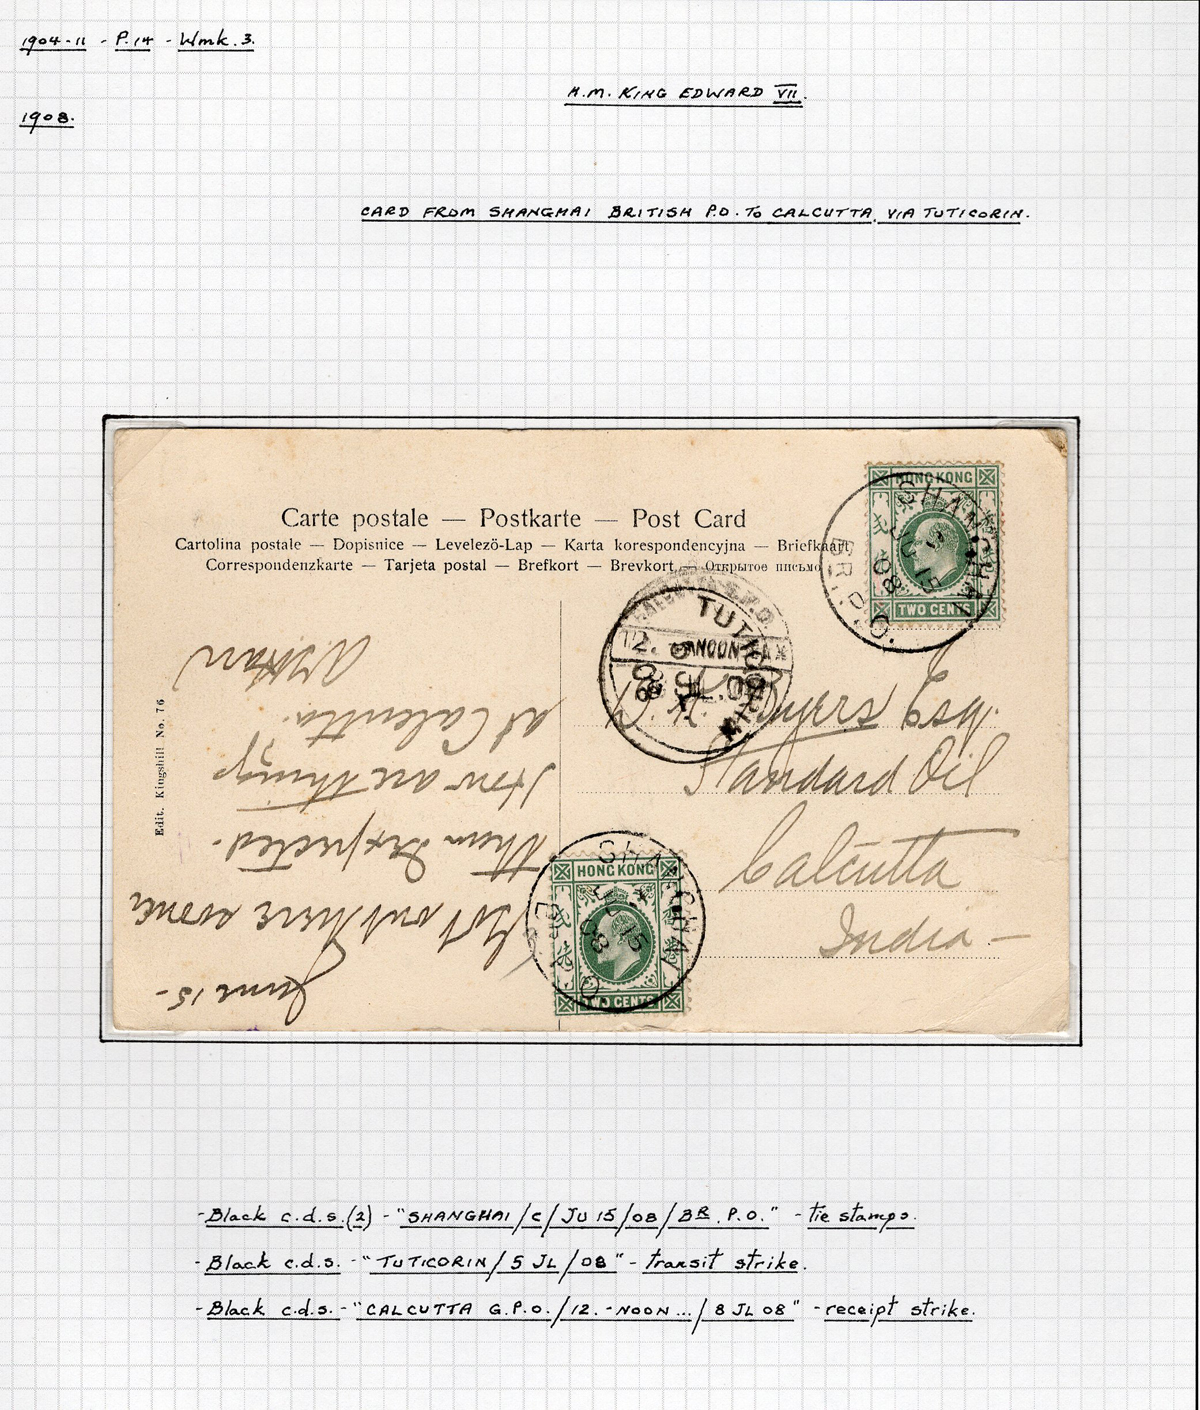 1904-11 - P.14 - Wmk.3.
H.M. KING EDWARD VII.
1908.
CARD FROM SHANGHAI BRITISH P.O. TO CALCUTTA, VIA TUTICORIN.
Carte postale — Postkarte — Post Card
Cartolina postale — Dopisnice — Levelező-Lap — Karta korespondencyjna — Briefkaart
Correspondenzkarte — Tarjeta postal — Brefkort — Brevkort — Открытое письмо
HONG KONG
TWO CENTS
SHANGHAI
JU 15
08
BR. P.O.
CALCUTTA G.P.O.
12. NOON
8 JL 08
TUTICORIN
5 JL
08
Myers Esq.
Standard Oil
Calcutta
India —
June 15 -
Got out here sooner
than expected.
How are things
at Calcutta.
Edit. Kingshill No. 76
HONG KONG
TWO CENTS
SHANGHAI
JU 15
08
BR. P.O.
- Black c.d.s. (2) - "SHANGHAI / C / JU 15 / 08 / BR. P.O." - tie stamps.
- Black c.d.s. - "TUTICORIN / 5 JL / 08" - transit strike.
- Black c.d.s. - "CALCUTTA G.P.O. / 12. - NOON ... / 8 JL 08" - receipt strike.